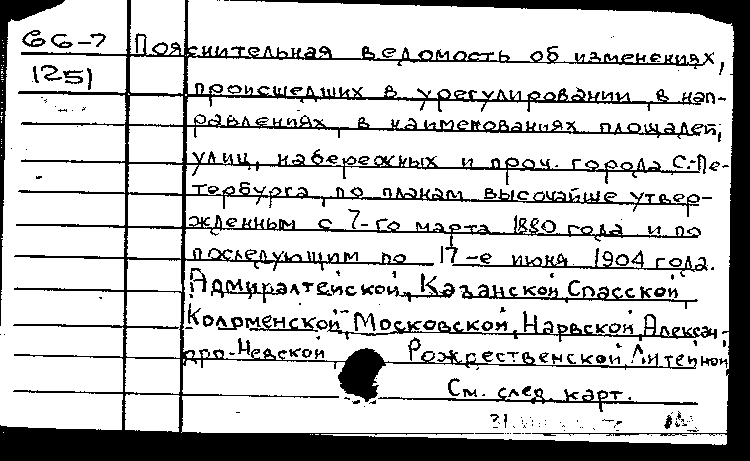 66-7 Пояснительная ведомость об изменениях,
1251
происшедших в урегулировании, в нап-
равлениях, в наименованиях площадей,
улиц, набережных и проч. города С.-Пе-
тербурга, по планам высочайше утвер-
жденным с 7-го марта 1880 года и по
последующим по 17-е июня 1904 года.
Адмиралтейской, Казанской, Спасской,
Коломенской, Московской, Нарвской, Алексан-
дро-Невской, Рожрественской, Литейной
См. след. карт.
31